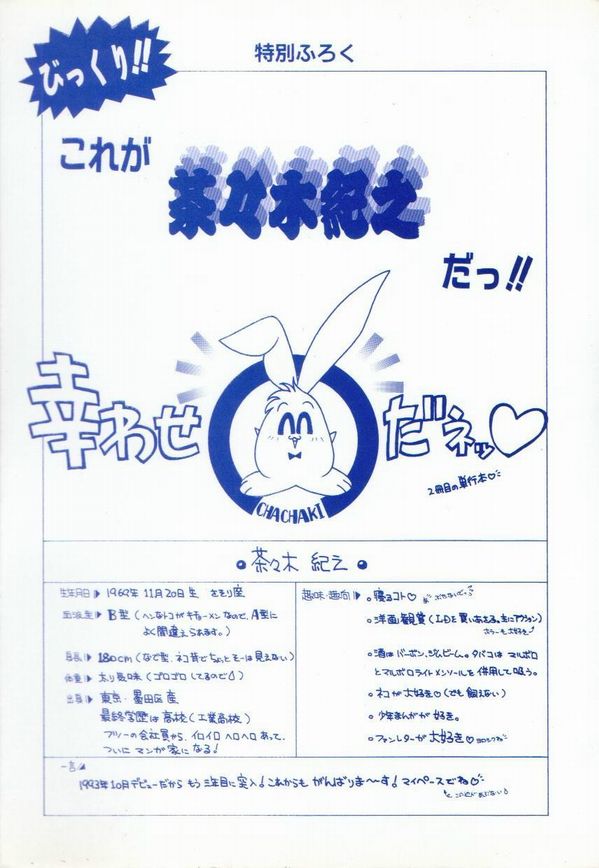 びっくり!!
特別ふろく
これが
茶々木紀之
だっ!!
幸わせ
だネッ♡
CHACHAKI
2冊目の単行本♡
• 茶々木 紀之 •
生年月日▶ 1969年 11月20日生 さそり座
血液型▶ B型(ヘンなトコがキチョーメンなので、A型に
よく間違えられます。)
身長▶ 180cm(なで型、ネコ背でちょっとそーは見えない)
体重▶ 太り気味(ゴロゴロしてるので)
出身▶ 東京・墨田区産
最終学歴は高校(工業高校)
フツーの会社員から、イロイロヘロヘロあって、
ついにマンガ家になる!
趣味・趣向▶
• 寝るコト♡
• 洋画観賞(LDを買いあさる。主にアクション)
ホラーも大好き
• 酒はバーボン、ジムビーム。タバコは マルボロ
とマルボロライトメンソールを併用して吸う。
• ネコが大好き♡(でも飼えない)
• 少年まんがが好き。
• ファンレターが大好き♡ ヨロシクね
一言
1993年10月デビューだから もう 三年目に突入! これからも がんばりま〜す! マイペースでね♡